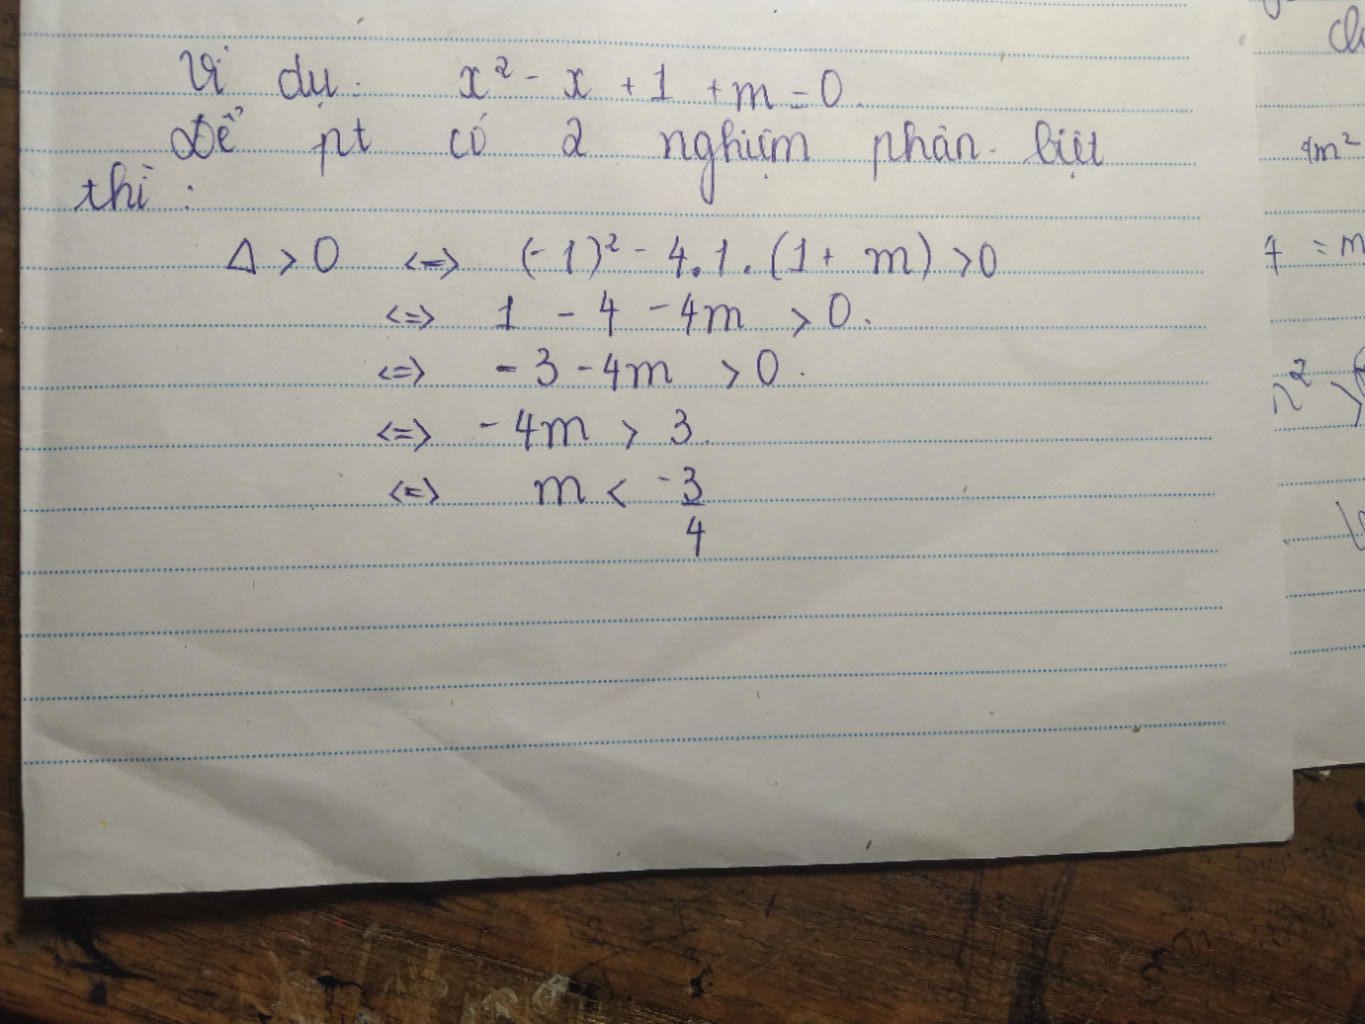 Ví dụ: x² - x + 1 + m = 0.
Để pt có 2 nghiệm phân biệt
thì:
Δ > 0 <=> (-1)² - 4.1.(1 + m) > 0
<=> 1 - 4 - 4m > 0.
<=> - 3 - 4m > 0.
<=> - 4m > 3.
<=> m < -3/4
4m²
= m